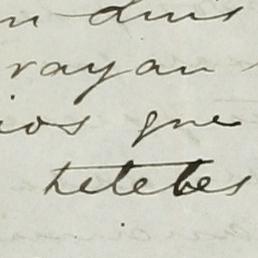 n dius
rayan
ios que
tetetes